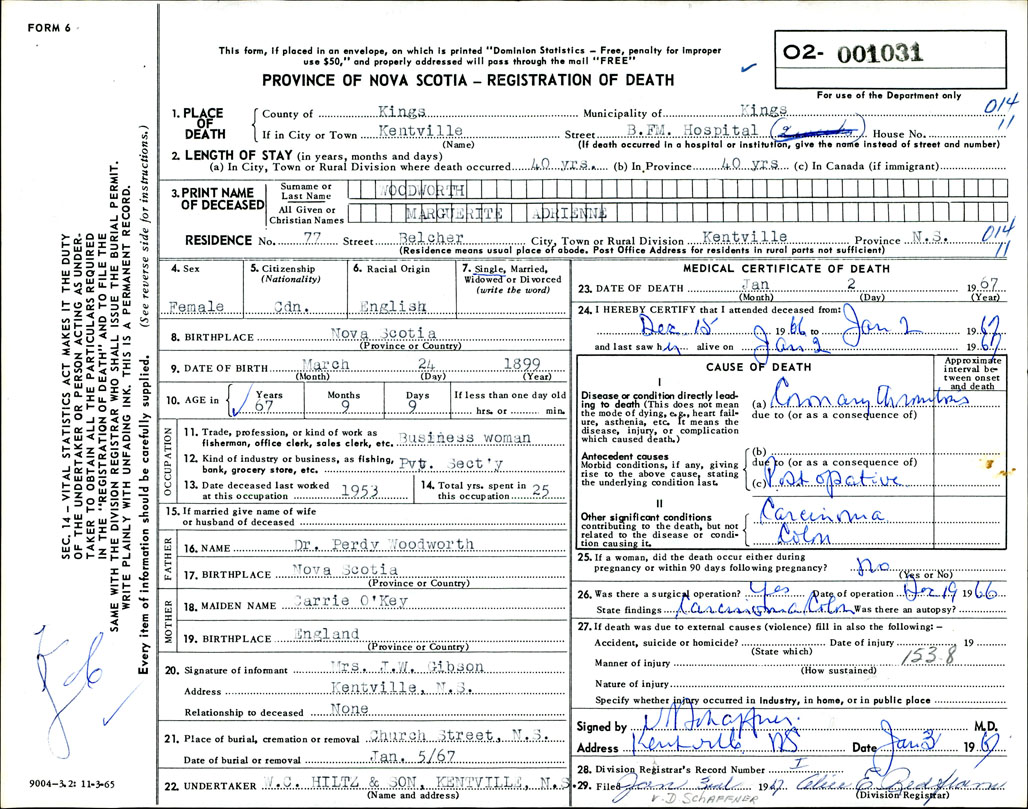 FORM 6
This form, if placed in an envelope, on which is printed "Dominion Statistics – Free, penalty for improper
use $50," and properly addressed will pass through the mail "FREE"
PROVINCE OF NOVA SCOTIA – REGISTRATION OF DEATH
O2- 001031
For use of the Department only
014
11
1. PLACE OF DEATH
County of Kings Municipality of Kings
If in City or Town Kentville Street B.FM. Hospital House No.
(Name) (If death occurred in a hospital or institution, give the name instead of street and number)
2. LENGTH OF STAY (in years, months and days)
(a) In City, Town or Rural Division where death occurred 40 yrs. (b) In Province 40 yrs (c) In Canada (if immigrant)
3. PRINT NAME OF DECEASED
Surname or Last Name WOODWORTH
All Given or Christian Names MARGUERITE ADRIENNE
RESIDENCE No. 77 Street Belcher City, Town or Rural Division Kentville Province N.S.
014
11
(Residence means usual place of abode. Post Office Address for residents in rural parts not sufficient)
4. Sex
Female
5. Citizenship
(Nationality)
Cdn.
6. Racial Origin
English
7. Single, Married,
Widowed or Divorced
(write the word)
8. BIRTHPLACE Nova Scotia
(Province or Country)
9. DATE OF BIRTH March 24 1899
(Month) (Day) (Year)
10. AGE in
Years Months Days If less than one day old
67 9 9 hrs. or min.
OCCUPATION
11. Trade, profession, or kind of work as
fisherman, office clerk, sales clerk, etc. Business woman
12. Kind of industry or business, as fishing,
bank, grocery store, etc. Pvt. Sect'y
13. Date deceased last worked
at this occupation 1953
14. Total yrs. spent in
this occupation 25
15. If married give name of wife
or husband of deceased
FATHER
16. NAME Dr. Perdy Woodworth
17. BIRTHPLACE Nova Scotia
(Province or Country)
MOTHER
18. MAIDEN NAME Carrie O'Key
19. BIRTHPLACE England
(Province or Country)
20. Signature of informant Mrs. J.W. Gibson
Address Kentville, N.S.
Relationship to deceased None
21. Place of burial, cremation or removal Church Street, N.S.
Date of burial or removal Jan. 5/67
22. UNDERTAKER W.C. HILTZ & SON, KENTVILLE, N.S.
(Name and address)
MEDICAL CERTIFICATE OF DEATH
23. DATE OF DEATH Jan 2 1967
(Month) (Day) (Year)
24. I HEREBY CERTIFY that I attended deceased from:
Dec 15 1966 to Jan 2 1967
and last saw her alive on Jan 2 1967
CAUSE OF DEATH
Approximate
interval be-
tween onset
and death
I
Disease or condition directly lead-
ing to death (This does not mean
the mode of dying, e.g., heart fail-
ure, asthenia, etc. It means the
disease, injury, or complication
which caused death.)
(a) Coronary thrombosis
due to (or as a consequence of)
Antecedent causes
Morbid conditions, if any, giving
rise to the above cause, stating
the underlying condition last.
(b)
due to (or as a consequence of)
(c) Post opative
II
Other significant conditions
contributing to the death, but not
related to the disease or condi-
tion causing it.
Carcinoma
Colon
25. If a woman, did the death occur either during
pregnancy or within 90 days following pregnancy? No
(Yes or No)
26. Was there a surgical operation? Yes Date of operation Dec 19 1966
State findings Carcinoma Colon Was there an autopsy?
27. If death was due to external causes (violence) fill in also the following: –
Accident, suicide or homicide? Date of injury 19
(State which)
153.8
Manner of injury
(How sustained)
Nature of injury
Specify whether injury occurred in Industry, in home, or in public place
Signed by V D Schaffner M.D.
Address Kentville NS Date Jan 3 1967
28. Division Registrar's Record Number I
29. Filed Jan 3rd 1967 Alice E.
(Division Registrar)
V-D SCHAFFNER
SEC. 14 – VITAL STATISTICS ACT MAKES IT THE DUTY
OF THE UNDERTAKER OR PERSON ACTING AS UNDER-
TAKER TO OBTAIN ALL THE PARTICULARS REQUIRED
IN THE "REGISTRATION OF DEATH" AND TO FILE THE
SAME WITH THE DIVISION REGISTRAR WHO SHALL ISSUE THE BURIAL PERMIT.
WRITE PLAINLY WITH UNFADING INK. THIS IS A PERMANENT RECORD.
Every item of information should be carefully supplied. (See reverse side for instructions.)
9004-3.2: 11-3-65